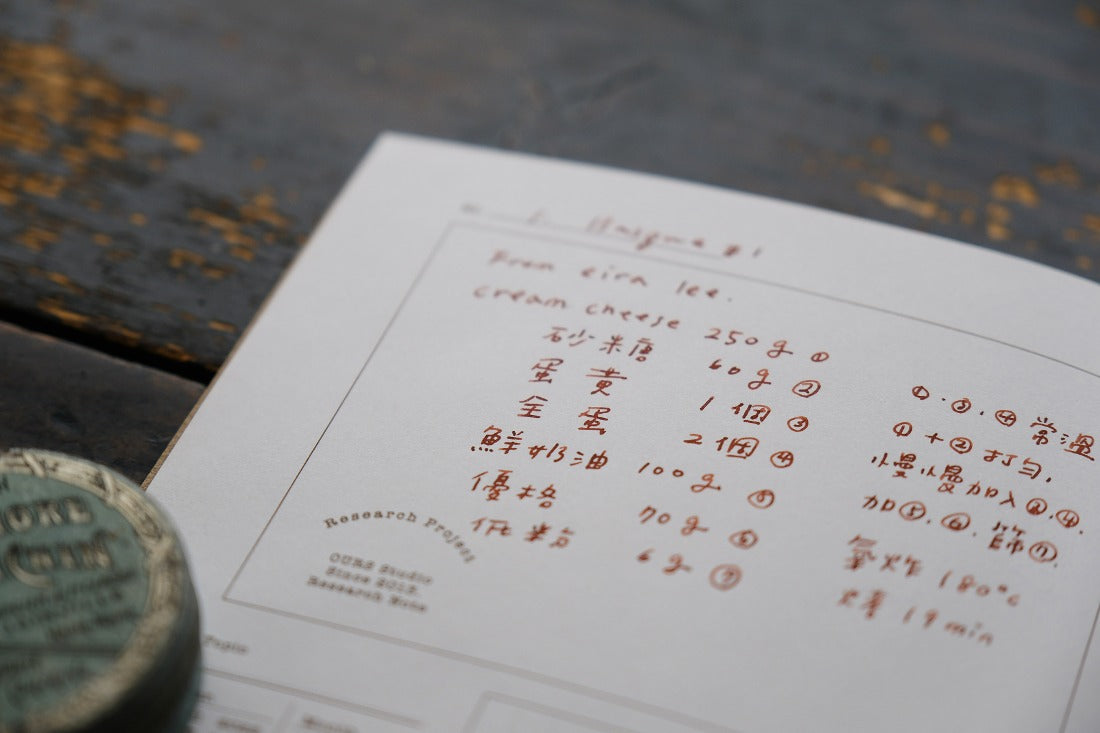 From eira lee.
cream cheese 250g ①
砂糖 60g ②
蛋黄 1個 ③
全蛋 2個 ④
鮮奶油 100g ⑤
優格 70g ⑥
低粉 6g ⑦
①.③.④ 常溫
①+② 打勻,
慢慢加入③.④.
加⑤.⑥.篩⑦.
氣炸 180°c
19min
Research Project
OURS Studio
Since 2012.
Research Note